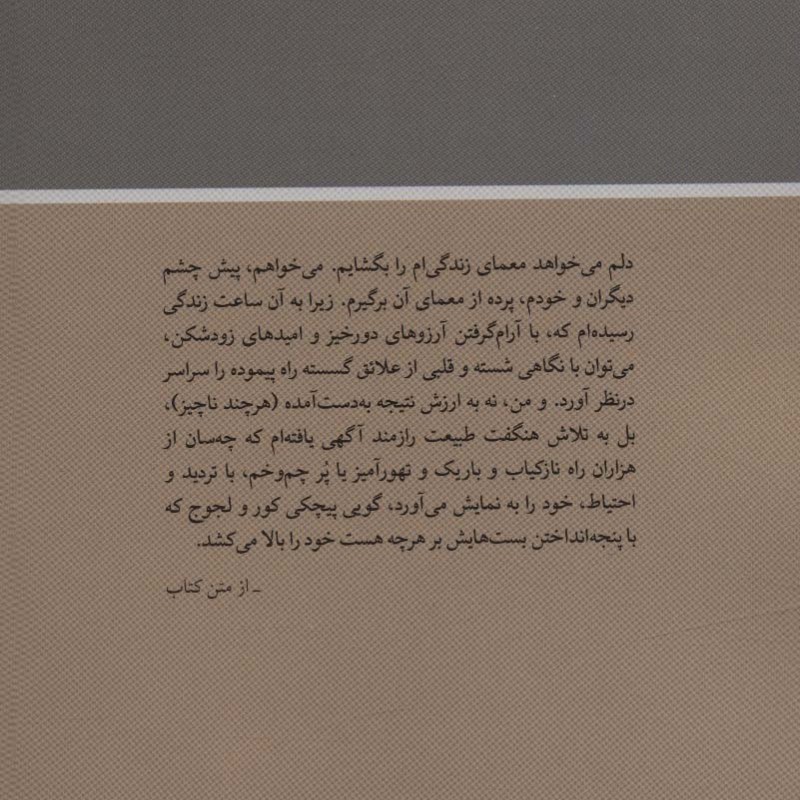 دلم می‌خواهد معمای زندگی‌ام را بگشایم. می‌خواهم، پیش چشم
دیگران و خودم، پرده از معمای آن برگیرم. زیرا به آن ساعت زندگی
رسیده‌ام که، با آرام‌گرفتن آرزوهای دورخیز و امیدهای زودشکن،
می‌توان با نگاهی شسته و قلبی از علائق گسسته راه پیموده را سراسر
درنظر آورد. و من، نه به ارزش نتیجه به‌دست‌آمده (هرچند ناچیز)،
بل به تلاش هنگفت طبیعت رازمند آگهی یافته‌ام که چه‌سان از
هزاران راه نازکیاب و باریک و تهورآمیز یا پُر چم‌وخم، با تردید و
احتیاط، خود را به نمایش می‌آورد، گویی پیچکی کور و لجوج که
با پنجه‌انداختن بست‌هایش بر هرچه هست خود را بالا می‌کشد.
ـ از متن کتاب